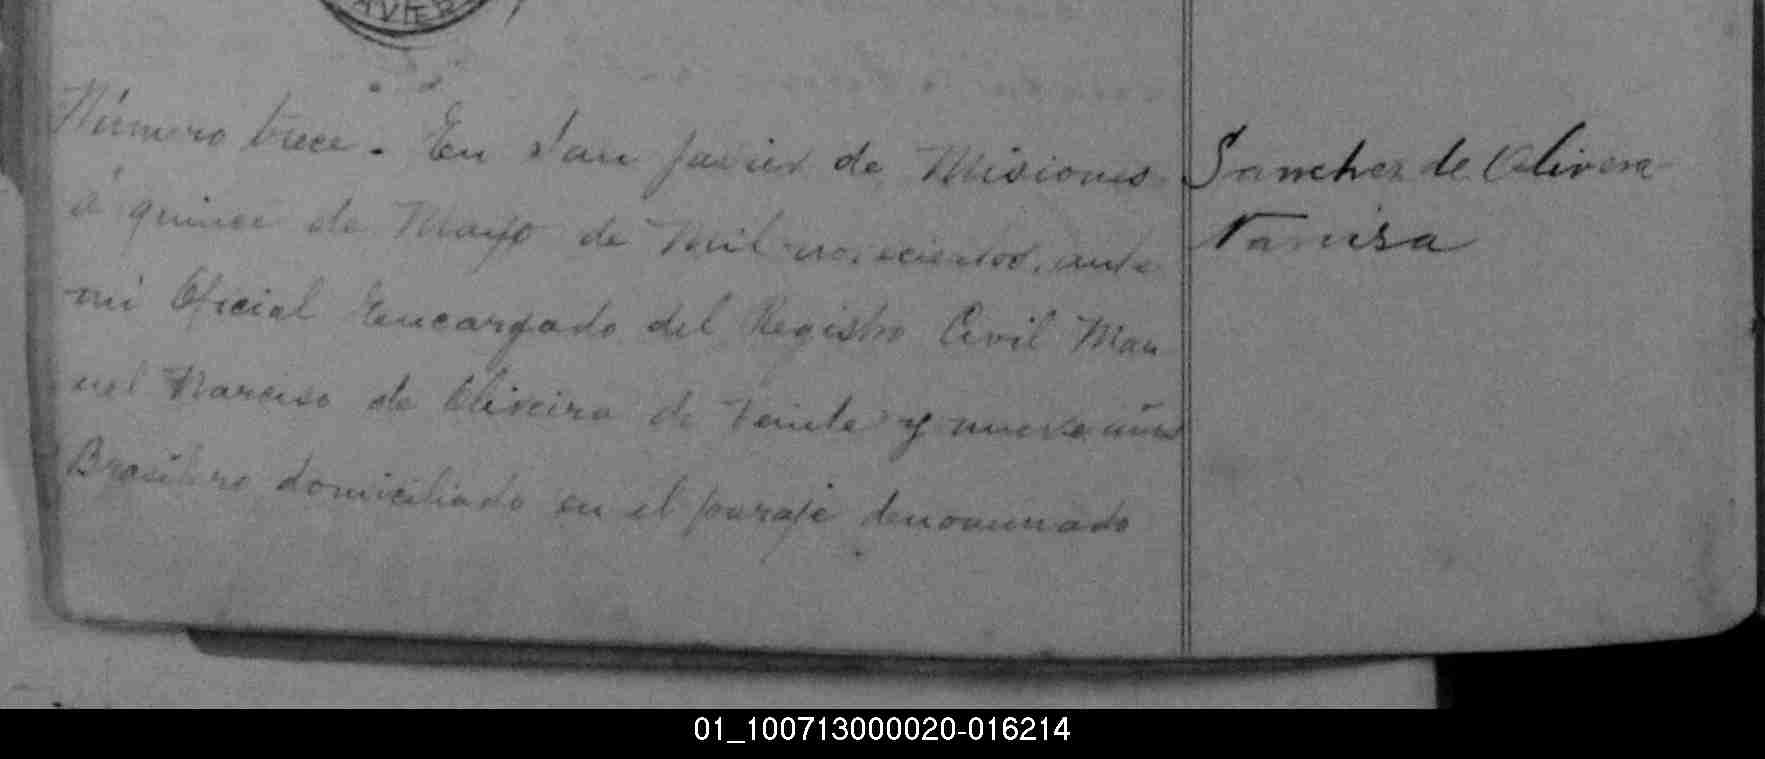 AVIER
Número trece. En San Javier de Misiones
á quince de Mayo de Mil novecientos, ante
mi Oficial Encargado del Registro Civil Man
uel Narciso de Oliveira de Veinte y nueve años
Brasilero domiciliado en el paraje denominado
Sanchez de Olivera
01_100713000020-016214